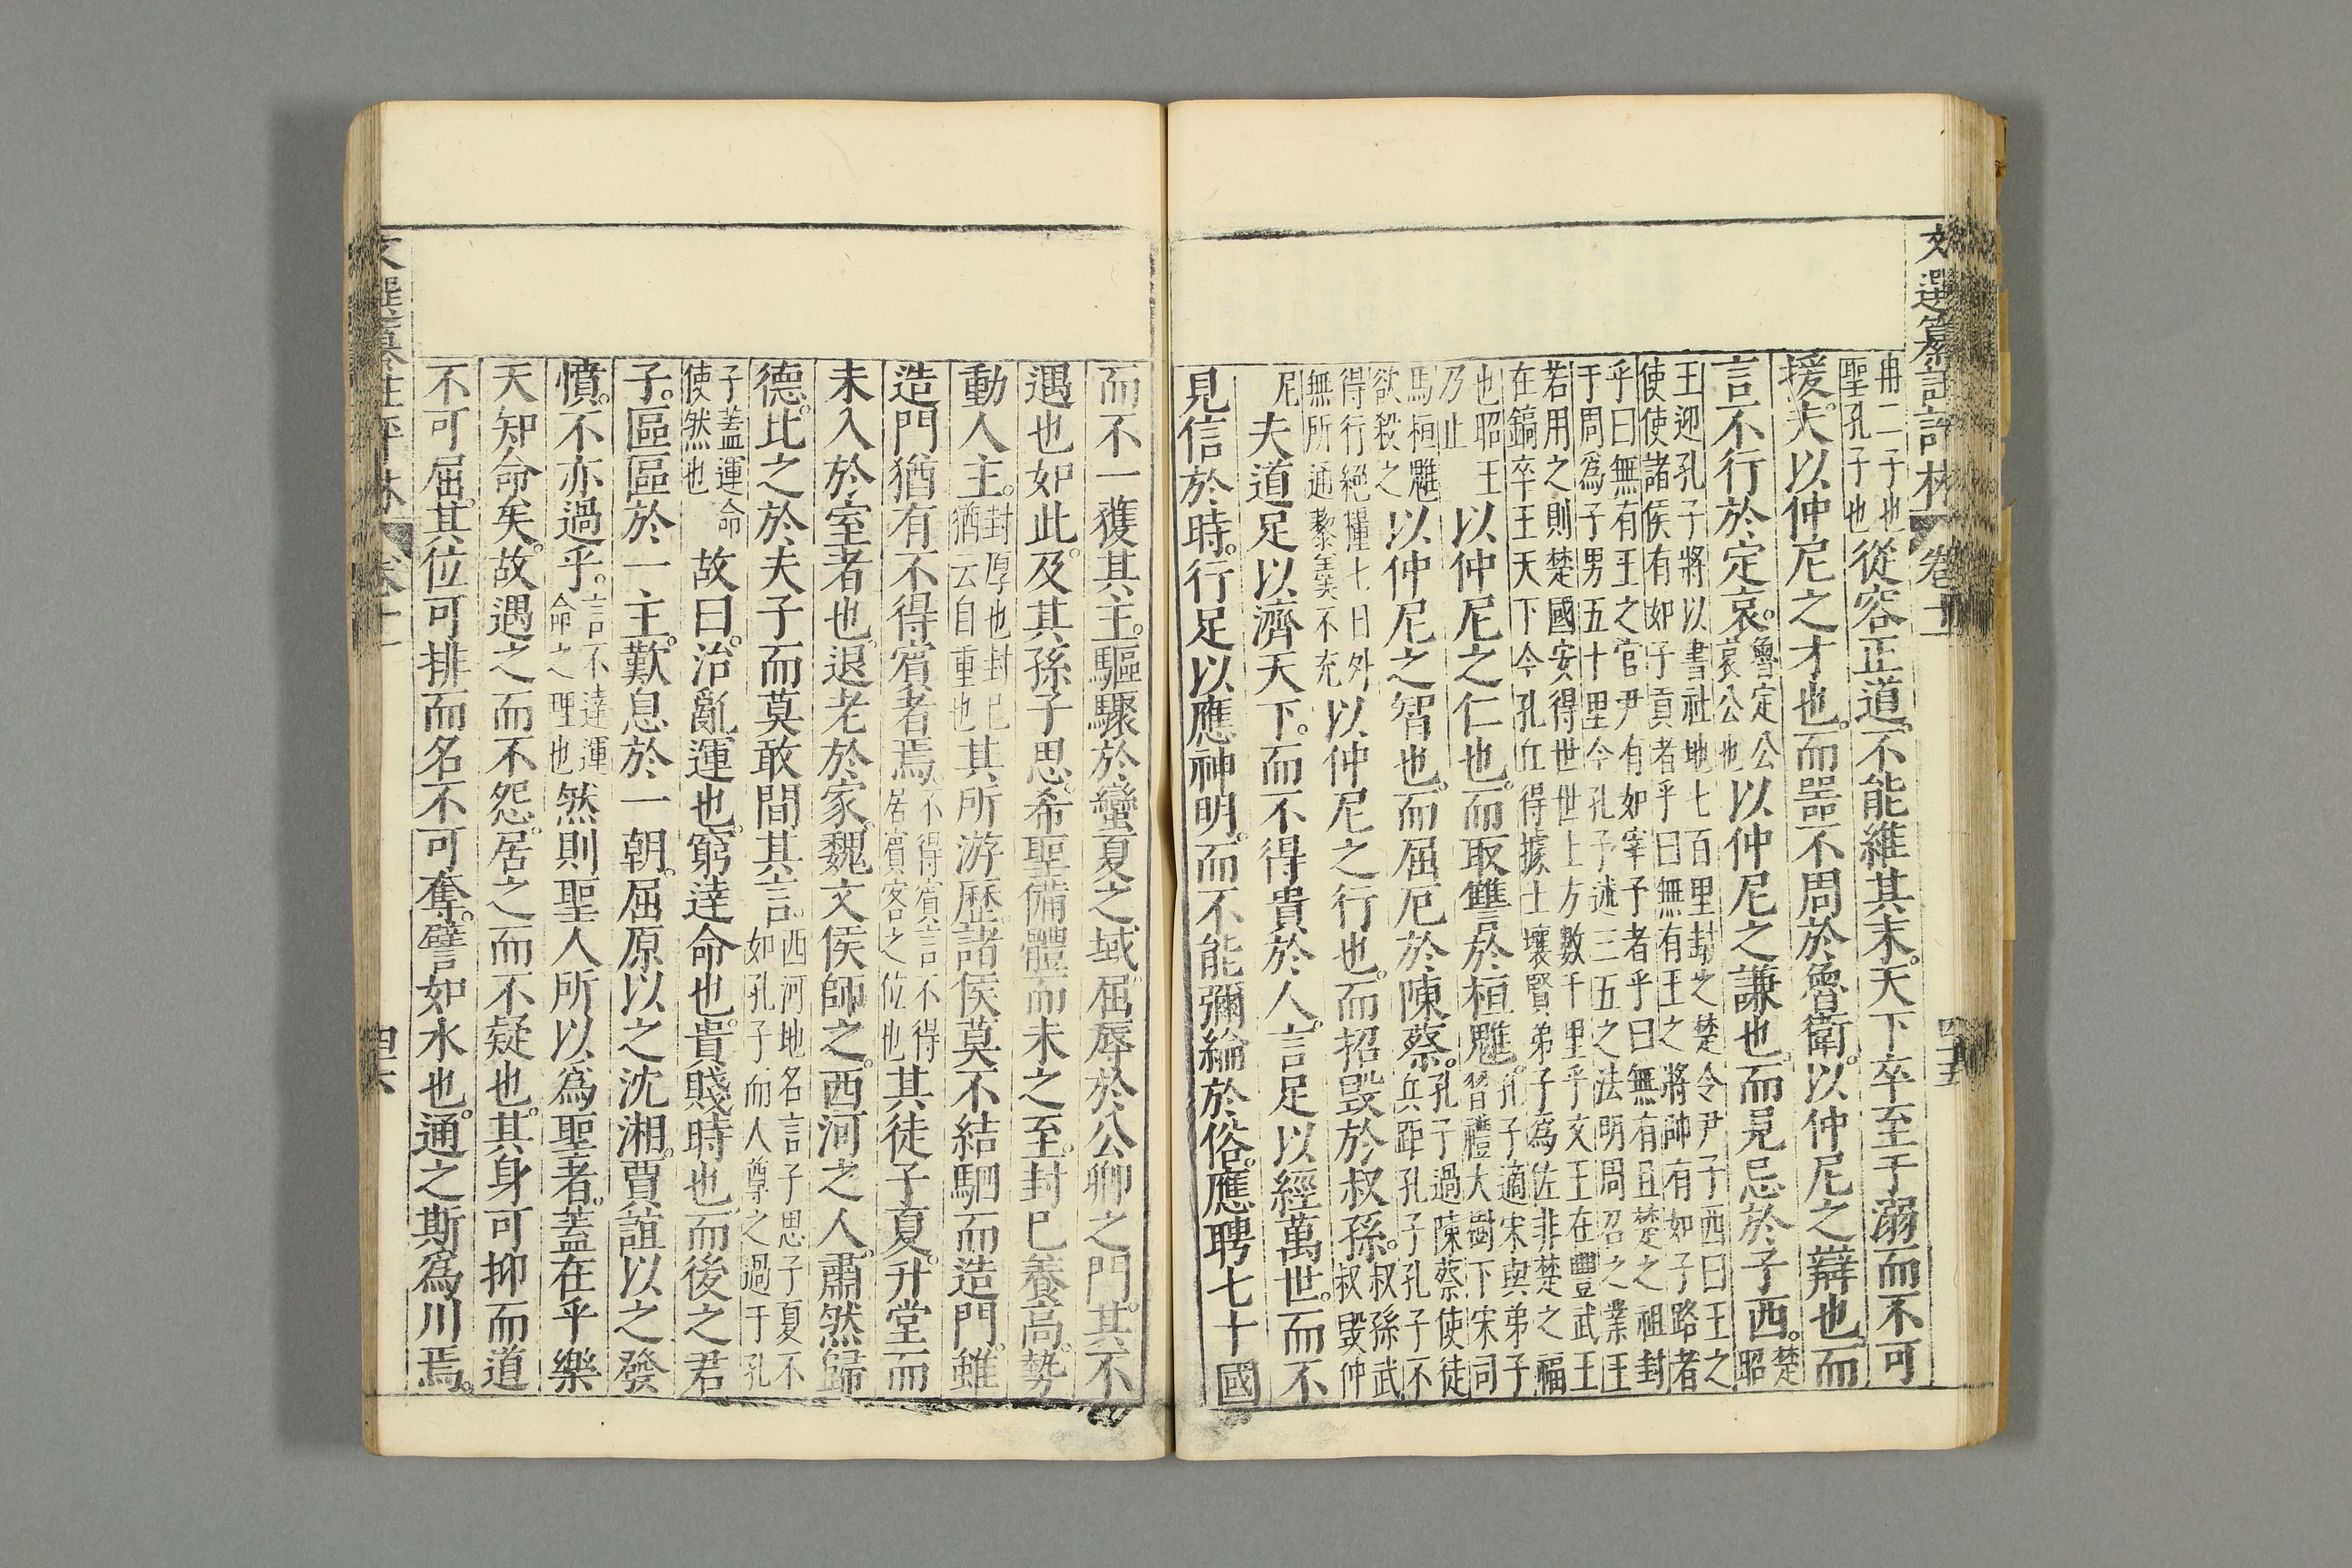 文選纂註評林 卷十一 四十五
冉二子也聖孔子也從容正道。不能維其末。天下卒至于溺而不可
援。夫以仲尼之才也。而噐不周於魯衛。以仲尼之辯也。而
言不行於定哀。魯定公哀公也以仲尼之謙也。而見忌於子西。楚昭
王迎孔子將以書社地七百里封之楚令尹子西曰王之
使使諸侯有如子貢者乎曰無有王之將帥有如子路者
乎曰無有王之官尹有如宰予者乎曰無有且楚之祖封
于周爲子男五十里今孔子述三五之法明周召之業王
若用之則楚國安得世世上方數千里乎文王在豐武王
在鎬卒王天下今孔丘得據土壤賢弟子爲佐非楚之福
也昭王乃止以仲尼之仁也。而取讐於桓魋。孔子適宋與弟子習禮大樹下宋司
馬桓魋欲殺之以仲尼之智也。而屈厄於陳蔡。孔子過陳蔡使徒兵距孔子孔子不
得行絕糧七日外無所通藜羹不充以仲尼之行也。而招毀於叔孫。叔孫武叔毀仲
尼夫道足以濟天下。而不得貴於人。言足以經萬世。而不
見信於時。行足以應神明。而不能彌綸於俗。應聘七十國
而不一獲其主。驅驟於蠻夏之域。屈辱於公卿之門。其不
遇也如此。及其孫子思。希聖備體。而未之至。封已養高。勢
動人主。封厚也封已猶云自重也其所游歷諸侯莫不結駟而造門。雖
造門猶有不得賓者焉。不得賓言不得居賓客之位也其徒子夏。升堂而
未入於室者也。退老於家。魏文侯師之。西河之人。肅然歸
德。比之於夫子而莫敢間其言。西河地名言子思子夏不如孔子而人尊之過于孔
子蓋運命使然也故曰。治亂運也。窮達命也。貴賤時也。而後之君
子。區區於一主。歎息於一朝。屈原以之沈湘。賈誼以之發
憤。不亦過乎。言不達運命之理也然則聖人所以爲聖者。蓋在乎樂
天知命矣。故遇之而不怨。居之而不疑也。其身可抑而道
不可屈。其位可排而名不可奪。譬如水也。通之斯爲川焉。
文選纂註評林 卷十一 四十六